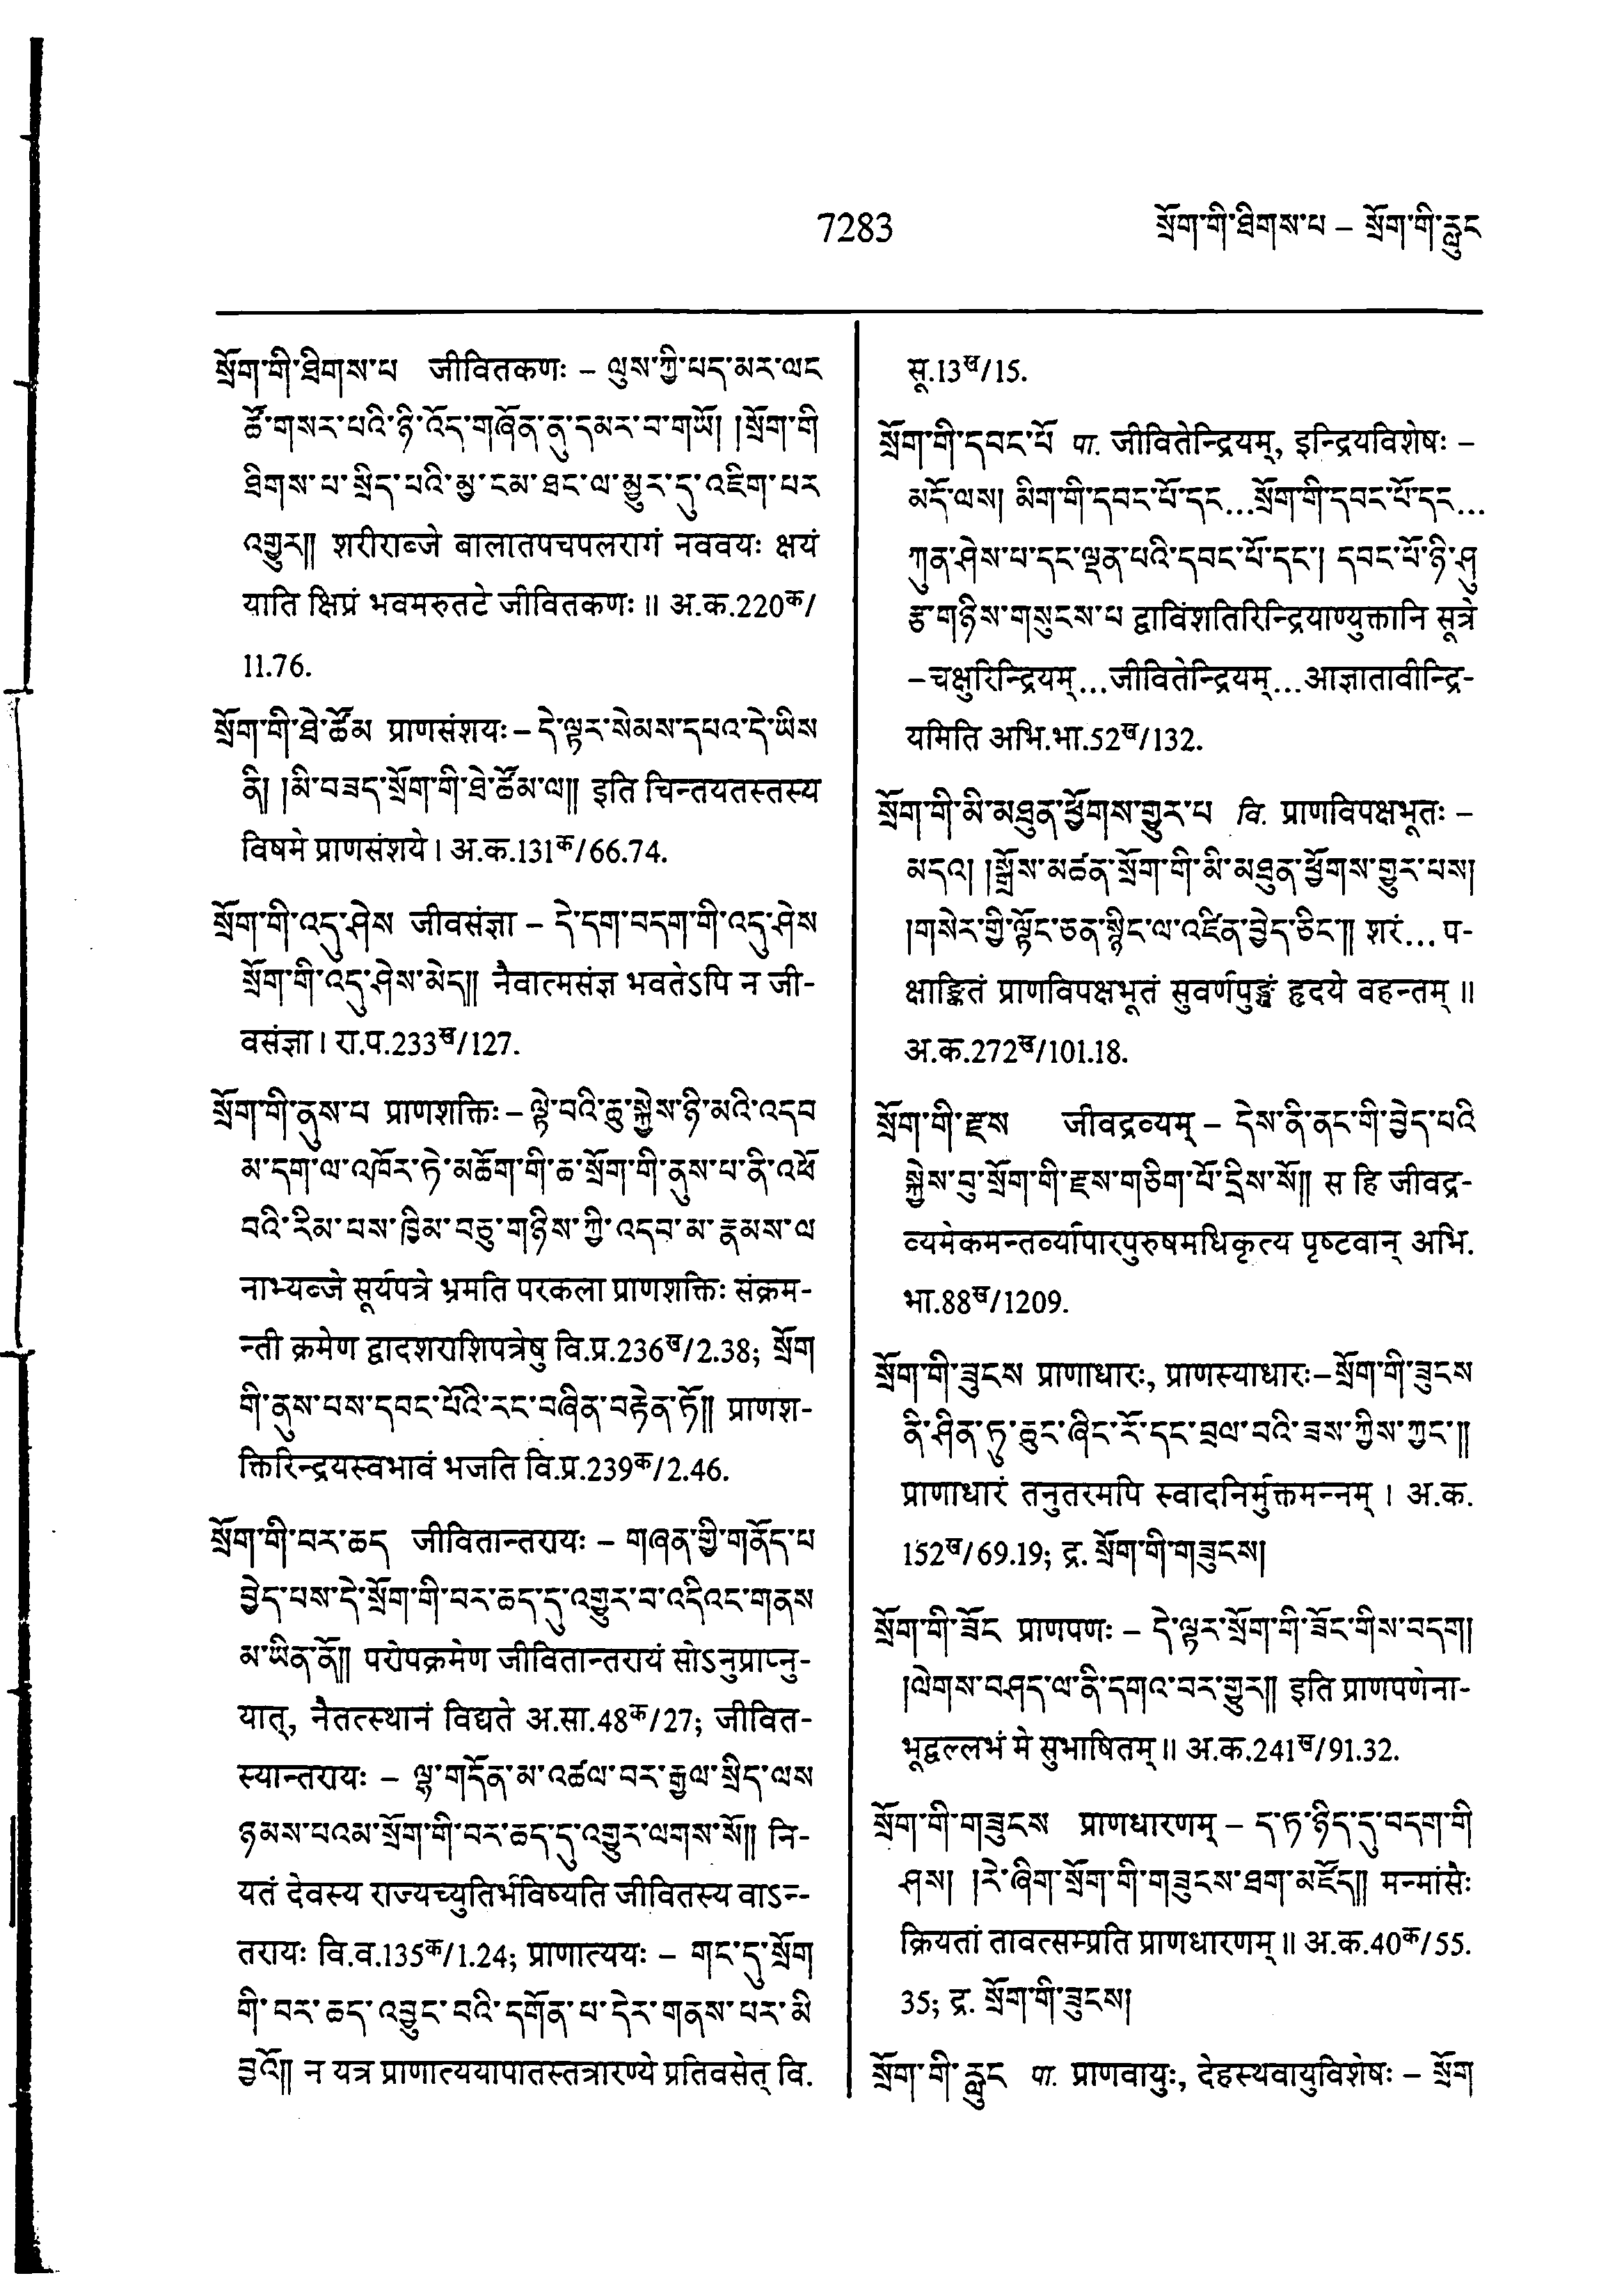 7283
སྲོག་གི་ཐིགས་པ – སྲོག་གི་རླུང
སྲོག་གི་ཐིགས་པ जीवितकणः – ལུས་ཀྱི་པད་མར་ལང
ཚོ་གསར་པའི་ཉི་འོད་གཞོན་ནུ་དམར་བ་གཡོ། །སྲོག་གི
ཐིགས་པ་སྲིད་པའི་མྱ་ངམ་ཐང་ལ་མྱུར་དུ་འཇིག་པར
འགྱུར།། शरीराब्जे बालातपचपलरागं नववयः क्षयं
याति क्षिप्रं भवमरुतटे जीवितकणः ॥ अ.क.220क/
11.76.
སྲོག་གི་ཐེ་ཚོམ प्राणसंशयः – དེ་ལྟར་སེམས་དཔའ་དེ་ཡིས
ནི། །མི་བཟད་སྲོག་གི་ཐེ་ཚོམ་ལ།། इति चिन्तयतस्तस्य
विषमे प्राणसंशये । अ.क.131क/66.74.
སྲོག་གི་འདུ་ཤེས जीवसंज्ञा – དེ་དག་བདག་གི་འདུ་ཤེས
སྲོག་གི་འདུ་ཤེས་མེད།། नैवात्मसंज्ञ भवतेऽपि न जी-
वसंज्ञा । रा.प.233ख/127.
སྲོག་གི་ནུས་པ प्राणशक्तिः – ལྟེ་བའི་ཆུ་སྐྱེས་ཉི་མའི་འདབ
མ་དག་ལ་འཁོར་ཏེ་མཆོག་གི་ཆ་སྲོག་གི་ནུས་པ་ནི་འཕོ
བའི་རིམ་པས་ཁྱིམ་བཅུ་གཉིས་ཀྱི་འདབ་མ་རྣམས་ལ
नाभ्यब्जे सूर्यपत्रे भ्रमति परकला प्राणशक्तिः संक्रम-
न्ती क्रमेण द्वादशराशिपत्रेषु वि.प्र.236ख/2.38; སྲོག
གི་ནུས་པས་དབང་པོའི་རང་བཞིན་བརྟེན་ཏོ།། प्राणश-
क्तिरिन्द्रियस्वभावं भजति वि.प्र.239क/2.46.
སྲོག་གི་བར་ཆད जीवितान्तरायः – གཞན་གྱི་གནོད་པ
བྱེད་པས་དེ་སྲོག་གི་བར་ཆད་དུ་འགྱུར་བ་འདིའང་གནས
མ་ཡིན་ནོ།། परोपक्रमेण जीवितान्तरायं सोऽनुप्राप्नु-
यात्, नैतत्स्थानं विद्यते अ.सा.48क/27; जीवित-
स्यान्तरायः – ལྷ་གདོན་མ་འཚལ་བར་རྒྱལ་སྲིད་ལས
ཉམས་པའམ་སྲོག་གི་བར་ཆད་དུ་འགྱུར་ལགས་སོ།། नि-
यतं देवस्य राज्यच्युतिर्भविष्यति जीवितस्य वाऽन्-
तरायः वि.व.135क/1.24; प्राणात्ययः – གང་དུ་སྲོག
གི་བར་ཆད་འབྱུང་བའི་དགོན་པ་དེར་གནས་པར་མི
བྱའོ།། न यत्र प्राणात्ययापातस्तत्रारण्ये प्रतिवसेत् वि.
सू.13ख/15.
སྲོག་གི་དབང་པོ पा. जीवितेन्द्रियम्, इन्द्रियविशेषः –
མདོ་ལས། མིག་གི་དབང་པོ་དང...སྲོག་གི་དབང་པོ་དང...
ཀུན་ཤེས་པ་དང་ལྡན་པའི་དབང་པོ་དང་། དབང་པོ་ཉི་ཤུ
རྩ་གཉིས་གསུངས་པ द्वाविंशतिरिन्द्रियाण्युक्तानि सूत्रे
– चक्षुरिन्द्रियम्...जीवितेन्द्रियम्...आज्ञातावीन्द्रि-
यमिति अभि.भा.52ख/132.
སྲོག་གི་མི་མཐུན་ཕྱོགས་གྱུར་པ वि. प्राणविपक्षभूतः –
མདའ། །སྒྲོས་མཚན་སྲོག་གི་མི་མཐུན་ཕྱོགས་གྱུར་པས།
།གསེར་གྱི་ལྟོང་ཅན་སྙིང་ལ་འཛིན་བྱེད་ཅིང་།། शरं... प-
क्षाङ्कितं प्राणविपक्षभूतं सुवर्णपुङ्खं हृदये वहन्तम् ॥
अ.क.272ख/101.18.
སྲོག་གི་རྫས जीवद्रव्यम् – དེས་ནི་ནང་གི་བྱེད་པའི
སྐྱེས་བུ་སྲོག་གི་རྫས་གཅིག་པོ་དྲིས་སོ།། स हि जीवद्र-
व्यमेकमन्तर्व्यापारपुरुषमधिकृत्य पृष्टवान् अभि.
भा.88ख/1209.
སྲོག་གི་ཟུངས प्राणाधारः, प्राणस्याधारः – སྲོག་གི་ཟུངས
ནི་ཤིན་ཏུ་ཆུང་ཞིང་རོ་དང་བྲལ་བའི་ཟས་ཀྱིས་ཀྱང་།།
प्राणाधारं तनुतरमपि स्वादनिर्मुक्तमन्नम् । अ.क.
152ख/69.19; द्र. སྲོག་གི་གཟུངས།
སྲོག་གི་ཟོང प्राणपणः – དེ་ལྟར་སྲོག་གི་ཟོང་གིས་བདག།
།ལེགས་བཤད་ལ་ནི་དགའ་བར་གྱུར།། इति प्राणपणेना-
भूद्वल्लभं मे सुभाषितम् ॥ अ.क.241ख/91.32.
སྲོག་གི་གཟུངས प्राणधारणम् – ད་ཏ་ཉིད་དུ་བདག་གི
ཤས། །རེ་ཞིག་སྲོག་གི་གཟུངས་ཐག་མཛོད།། मन्मांसैः
क्रियतां तावत्सम्प्रति प्राणधारणम् ॥ अ.क.40क/55.
35; द्र. སྲོག་གི་ཟུངས།
སྲོག་གི་རླུང पा. प्राणवायुः, देहस्थवायुविशेषः – སྲོག